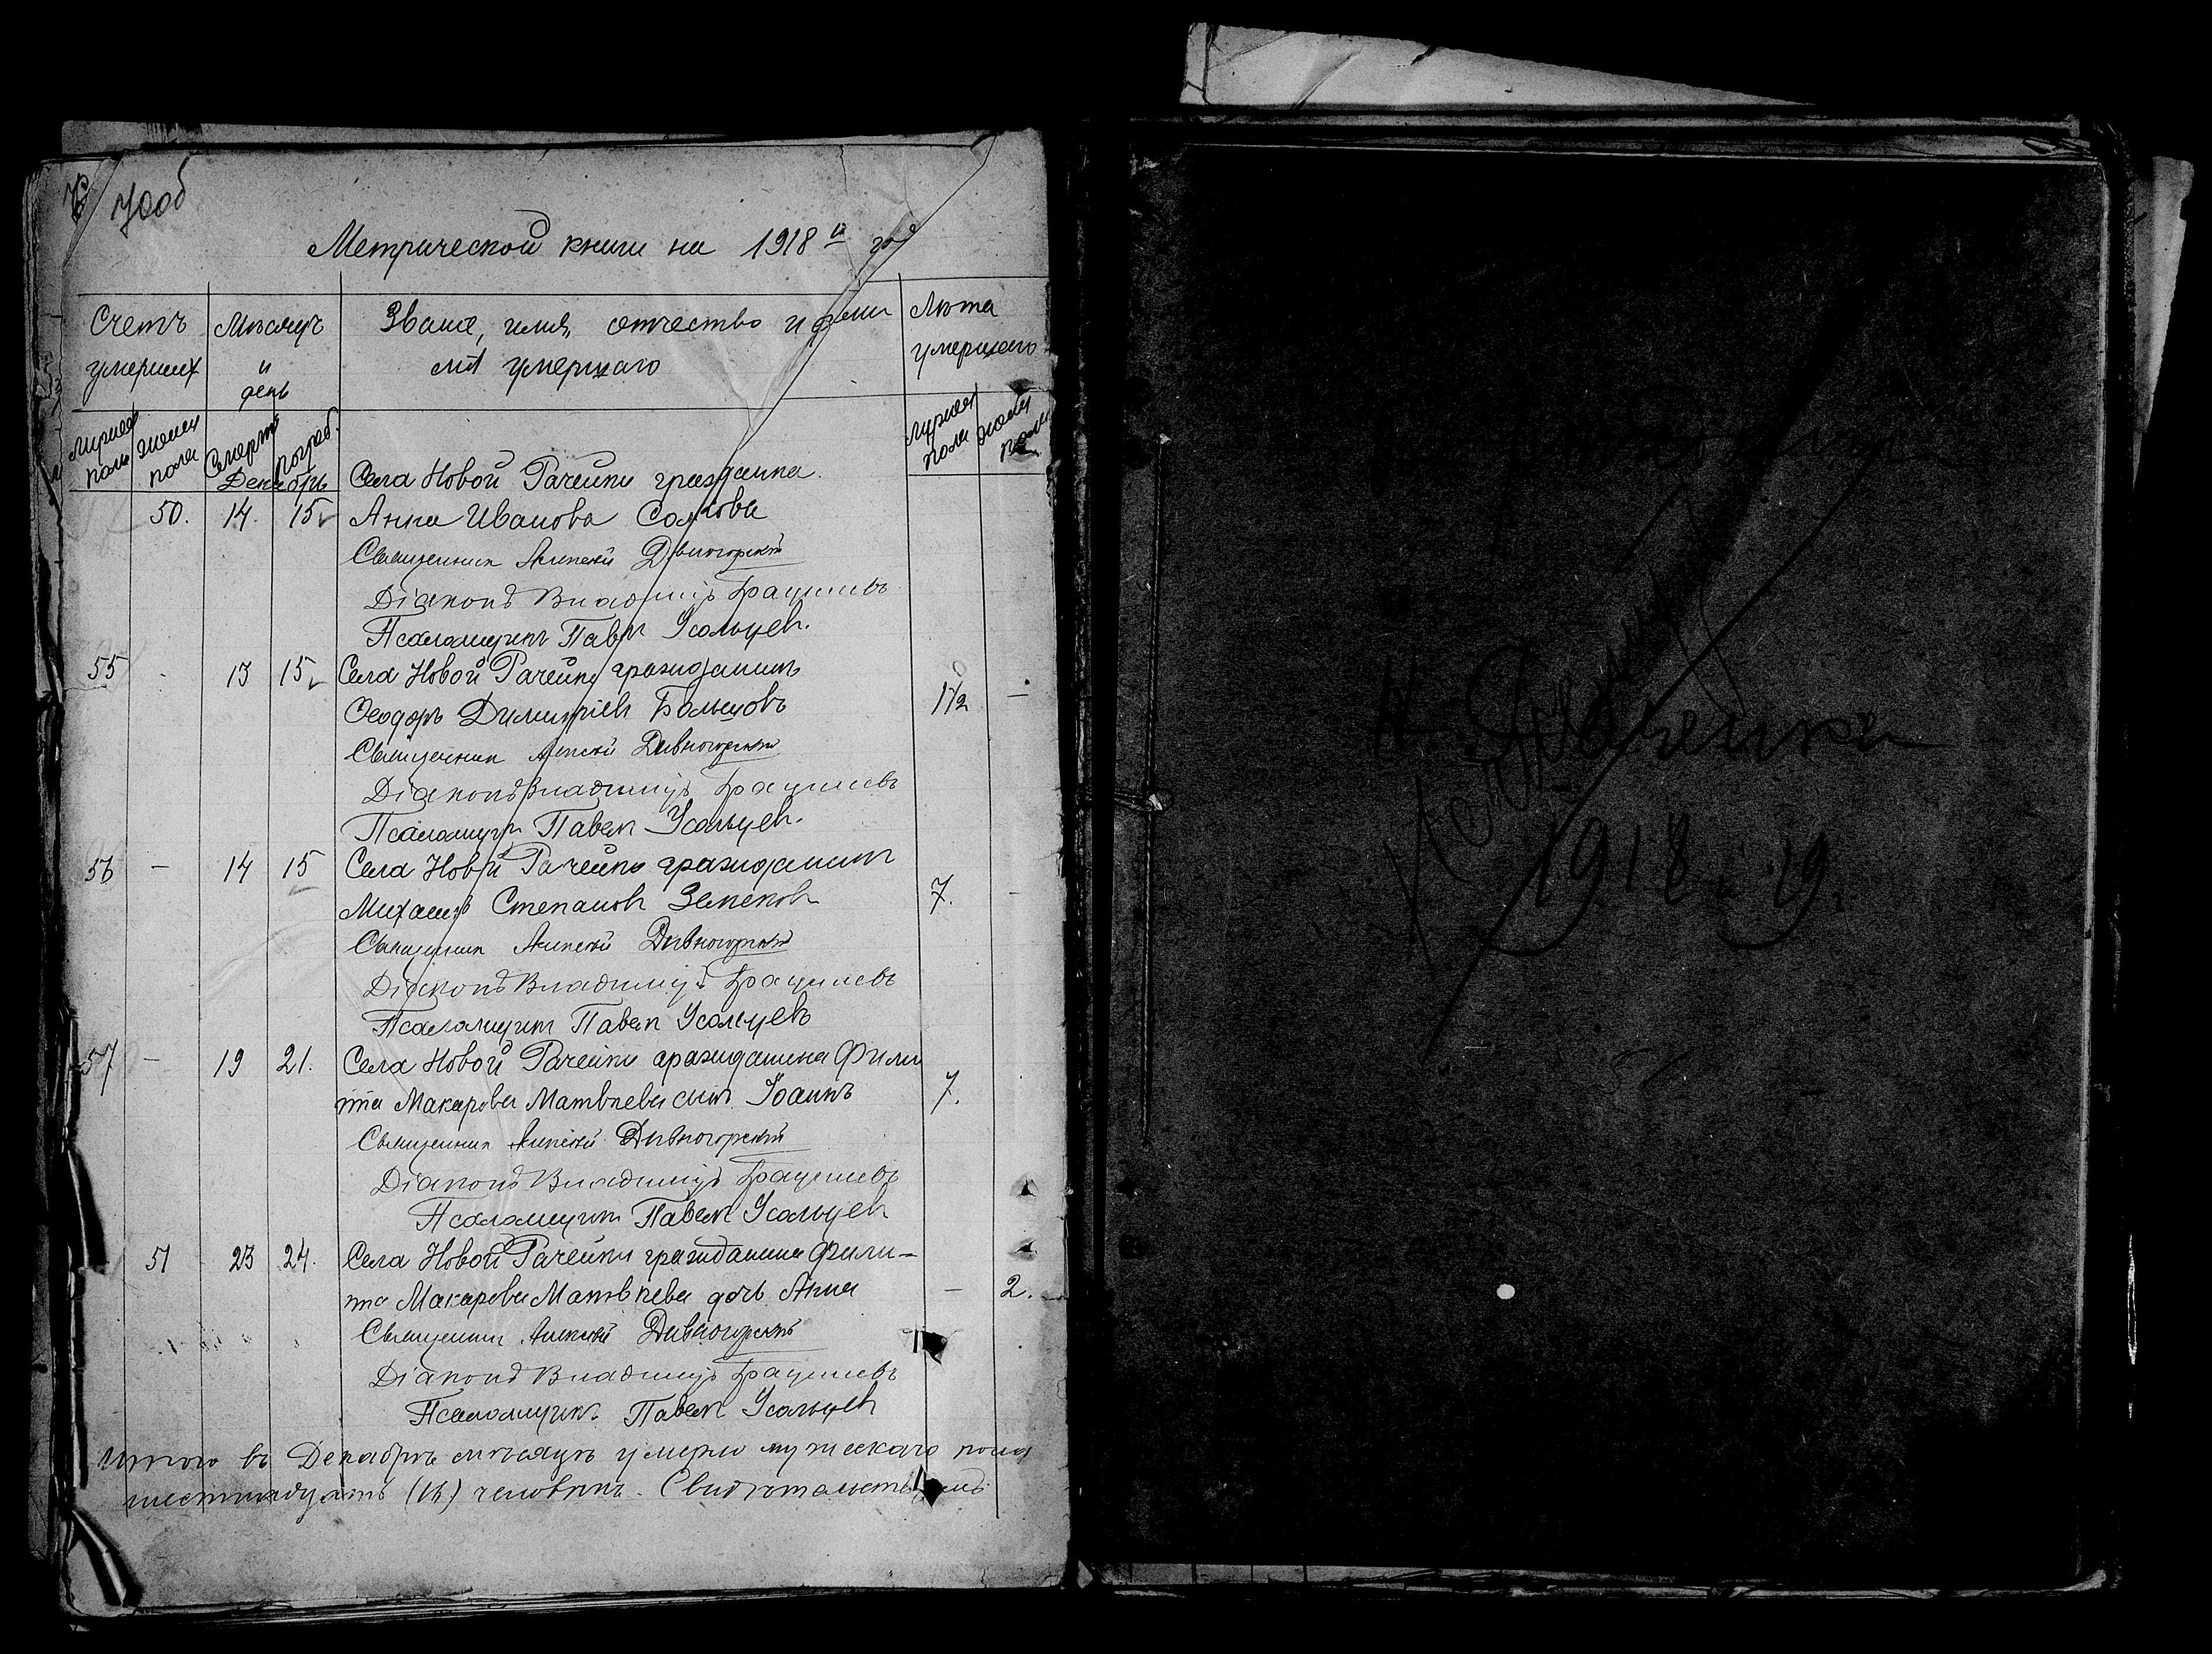 70об
Метрической книги на 1918 й год
Счетъ умершихъ
Мѣсяцъ и день
Званіе, имя, отчество и фами
лія умершаго
Лѣта умершаго
мужеск пола
женск пола
Смерти
погреб.
мужеск пола
женск пола
Декабрь
Села Новой Рачейки гражданка
50. 14. 15 Анна Иванова
Священник Алексѣй Дивногорскій
Діаконъ Владиміръ
Псаломщикъ Павел Усольцев.
55 13 15 Села Новой Рачейки гражданинъ
Ѳеодоръ Димитріев 1 1/2 —
Священник Алексѣй Дивногорскій
Діаконъ Владиміръ
Псаломщик Павел Усольцев.
56 — 14 15 Села Новой Рачейки гражданин
Михаилъ Степанов Земсков 7. -
Священник Алексѣй Дивногорскій
Діаконъ Владиміръ
Псаломщик Павел Усольцевъ
57 — 19 21. Села Новой Рачейки гражданина Фили
ппа Макарова Матвѣева сынъ Іоаннъ 7.
Священник Алексѣй Дивногорскій
Діаконъ Владиміръ
Псаломщик Павел Усольцев
51 23 24. Села Новой Рачейки гражданина Фили-
ппа Макарова Матвѣева дочь Анна — 2.
Священник Алексѣй Дивногорскій
Діаконъ Владиміръ
Псаломщик. Павел Усольцев
Итого въ Декабрѣ мѣсяцѣ умерло мужескаго пола
шестнадцать (16) человѣкъ.
Рачейка
1918 и 19 г.